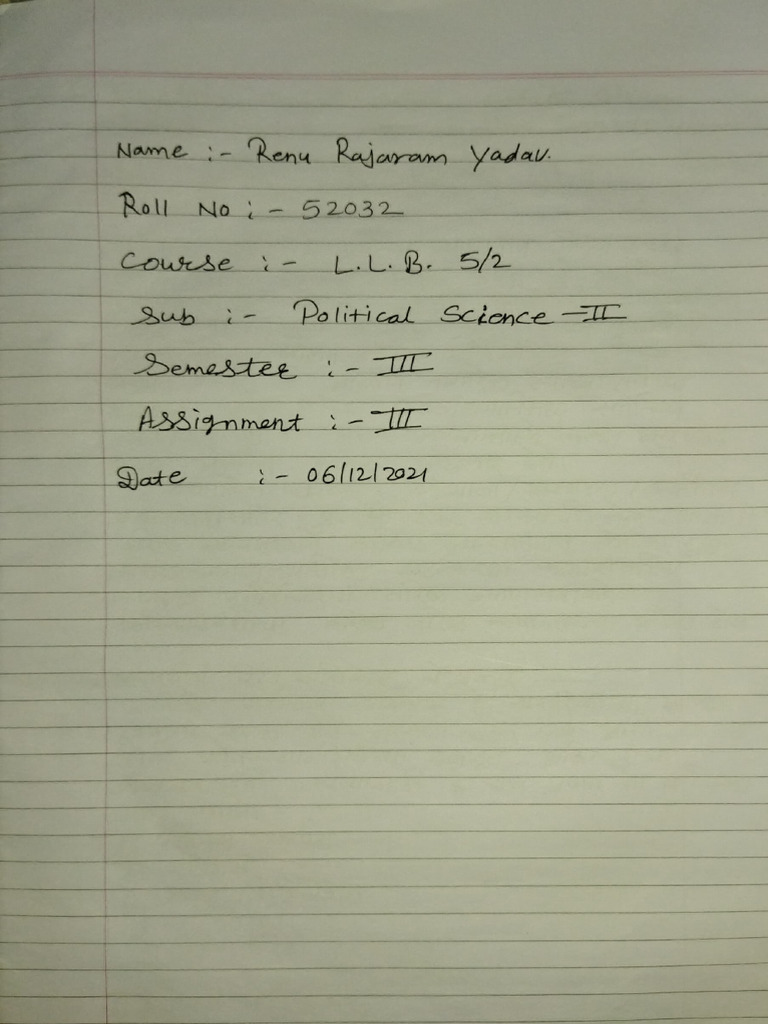 Name :- Renu Rajaram Yadav.
Roll No :- 52032
Course :- L.L.B. 5/2
Sub :- Political Science -II
Semester :- III
Assignment :- III
Date :- 06/12/2021